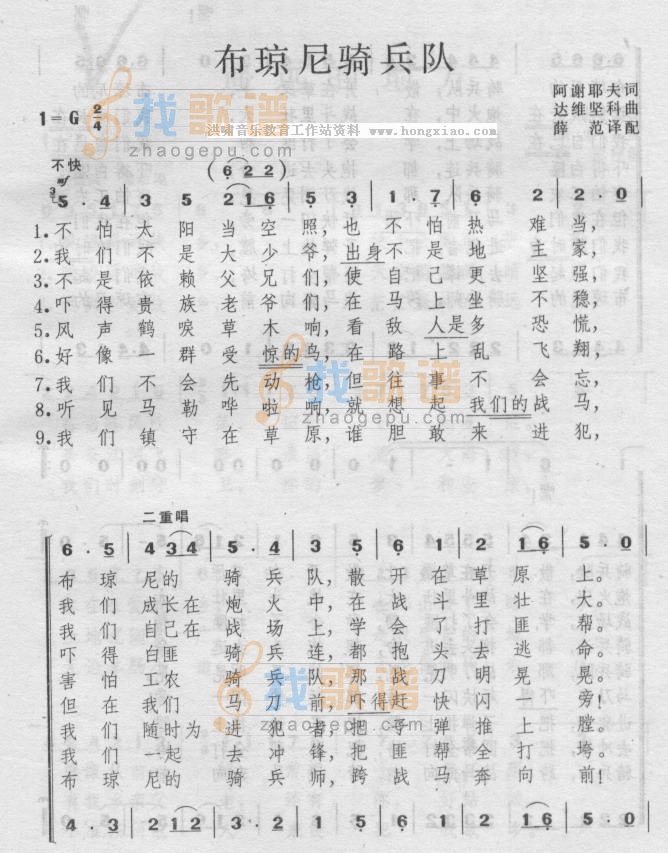 布琼尼骑兵队
阿谢耶夫词
达维坚科曲
薛范译配
1=G 2/4
找歌谱
洪啸音乐教育工作站资料 www.hongxiao.com
zhaogepu.com
不快
(6 2 2)
mf
5 . 4 | 3 5 | 2 1 6 | 5 . 3 | 1 . 7 | 6 2 | 2 . 0
1.不怕太阳当空照,也不怕热难当,
2.我们不是大少爷,出身不是地主家,
3.不是依赖父兄们,使自己更坚强,
4.吓得贵族老爷们,在马上坐不稳,
5.风声鹤唳草木响,看敌人是多恐慌,
6.好像群受惊的鸟,在路上乱飞翔,
7.我们不会先动枪,但往事不会忘,
8.听见马勒哗啦响,就想起我们的战马,
9.我们镇守在草原,谁胆敢来进犯,
找歌谱
zhaogepu.com
二重唱
6 . 5 | 4 3 4 | 5 . 4 | 3 . 5 | 6 1 | 2 1 6 | 5 . 0
布琼尼的骑兵队,散开在草原上。
我们成长在炮火中,在战斗里壮大。
我们自己在战场上,学会了打匪帮。
吓得白匪骑兵连,都抱头去逃命。
害怕工农骑兵队,那战刀明晃晃。
但在我们马刀前,吓得赶快闪旁!
我们随时为进犯者,把子弹推上膛。
我们一起去冲锋,把匪帮全打垮!
布琼尼的骑兵师,跨战马奔向前!
找歌谱
zhaogepu.com
4 . 3 | 2 1 2 | 3 . 2 | 1 5 | 6 5 | 4 3 2 | 5 . 0